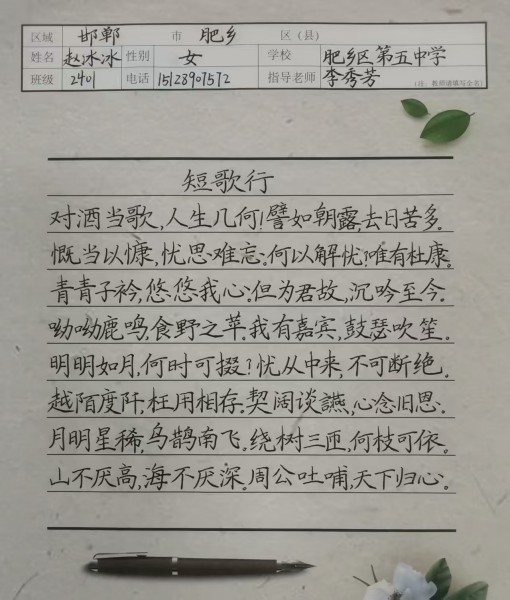 区域 邯郸 市 肥乡 区(县)
姓名 赵冰冰 性别 女 学校 肥乡区第五中学
班级 2401 电话 15128907572 指导老师 李秀芳 (注:教师请填写全名)
短歌行
对酒当歌,人生几何!譬如朝露,去日苦多。
慨当以慷,忧思难忘。何以解忧?唯有杜康。
青青子衿,悠悠我心。但为君故,沉吟至今。
呦呦鹿鸣,食野之苹。我有嘉宾,鼓瑟吹笙。
明明如月,何时可掇?忧从中来,不可断绝。
越陌度阡,枉用相存。契阔谈讌,心念旧恩。
月明星稀,乌鹊南飞。绕树三匝,何枝可依。
山不厌高,海不厌深。周公吐哺,天下归心。